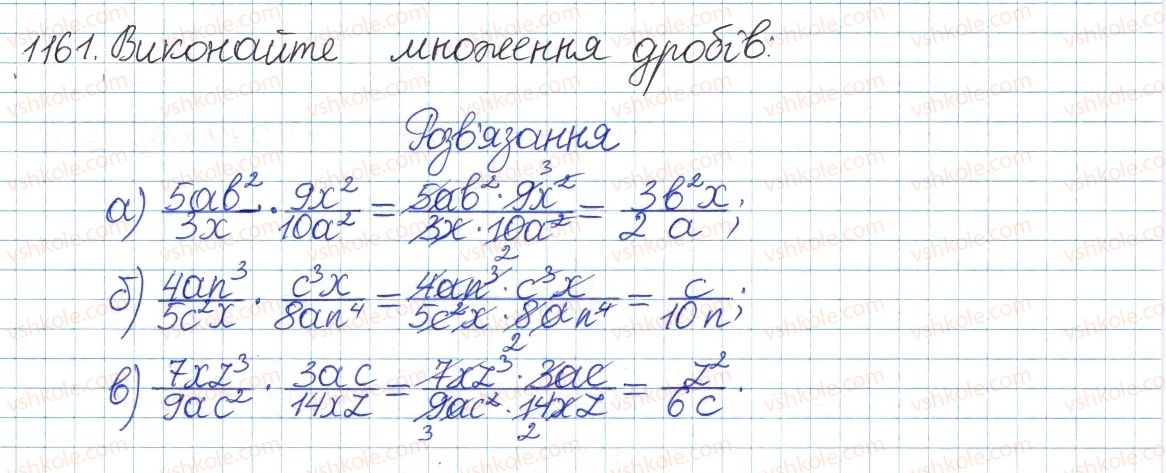 1161. Виконайте множення дробів:
Розв'язання
а) 5ab²/3x · 9x²/10a² = 5ab² · 9x²/3x · 10a² = 3b²x/2a;
3
2
б) 4an³/5c²x · c³x/8an⁴ = 4an³ · c³x/5c²x · 8an⁴ = c/10n;
2
в) 7xz³/9ac² · 3ac/14xz = 7xz³ · 3ac/9ac² · 14xz = z²/6c.
3 2
vshkole.com